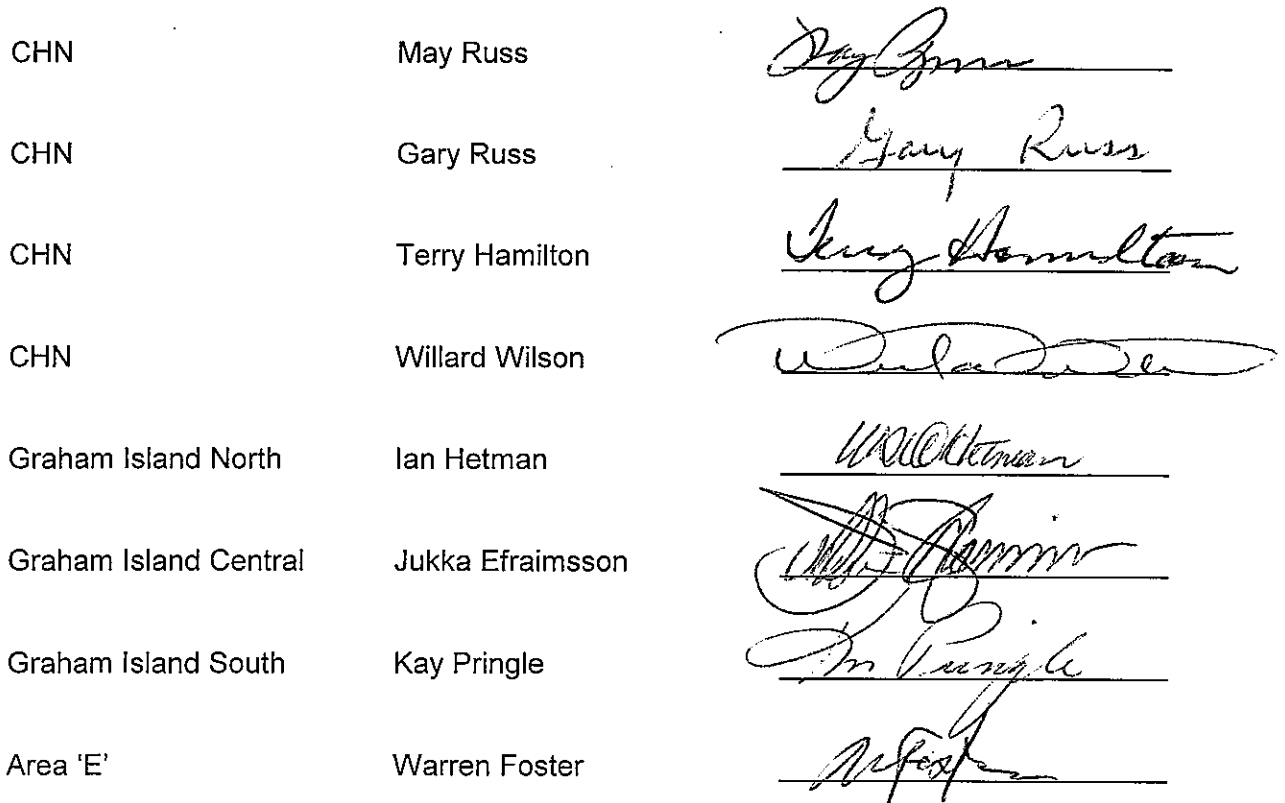 CHN May Russ
CHN Gary Russ Gary Russ
CHN Terry Hamilton Terry Hamilton
CHN Willard Wilson
Graham Island North Ian Hetman
Graham Island Central Jukka Efraimsson
Graham Island South Kay Pringle Pringle
Area ‘E’ Warren Foster